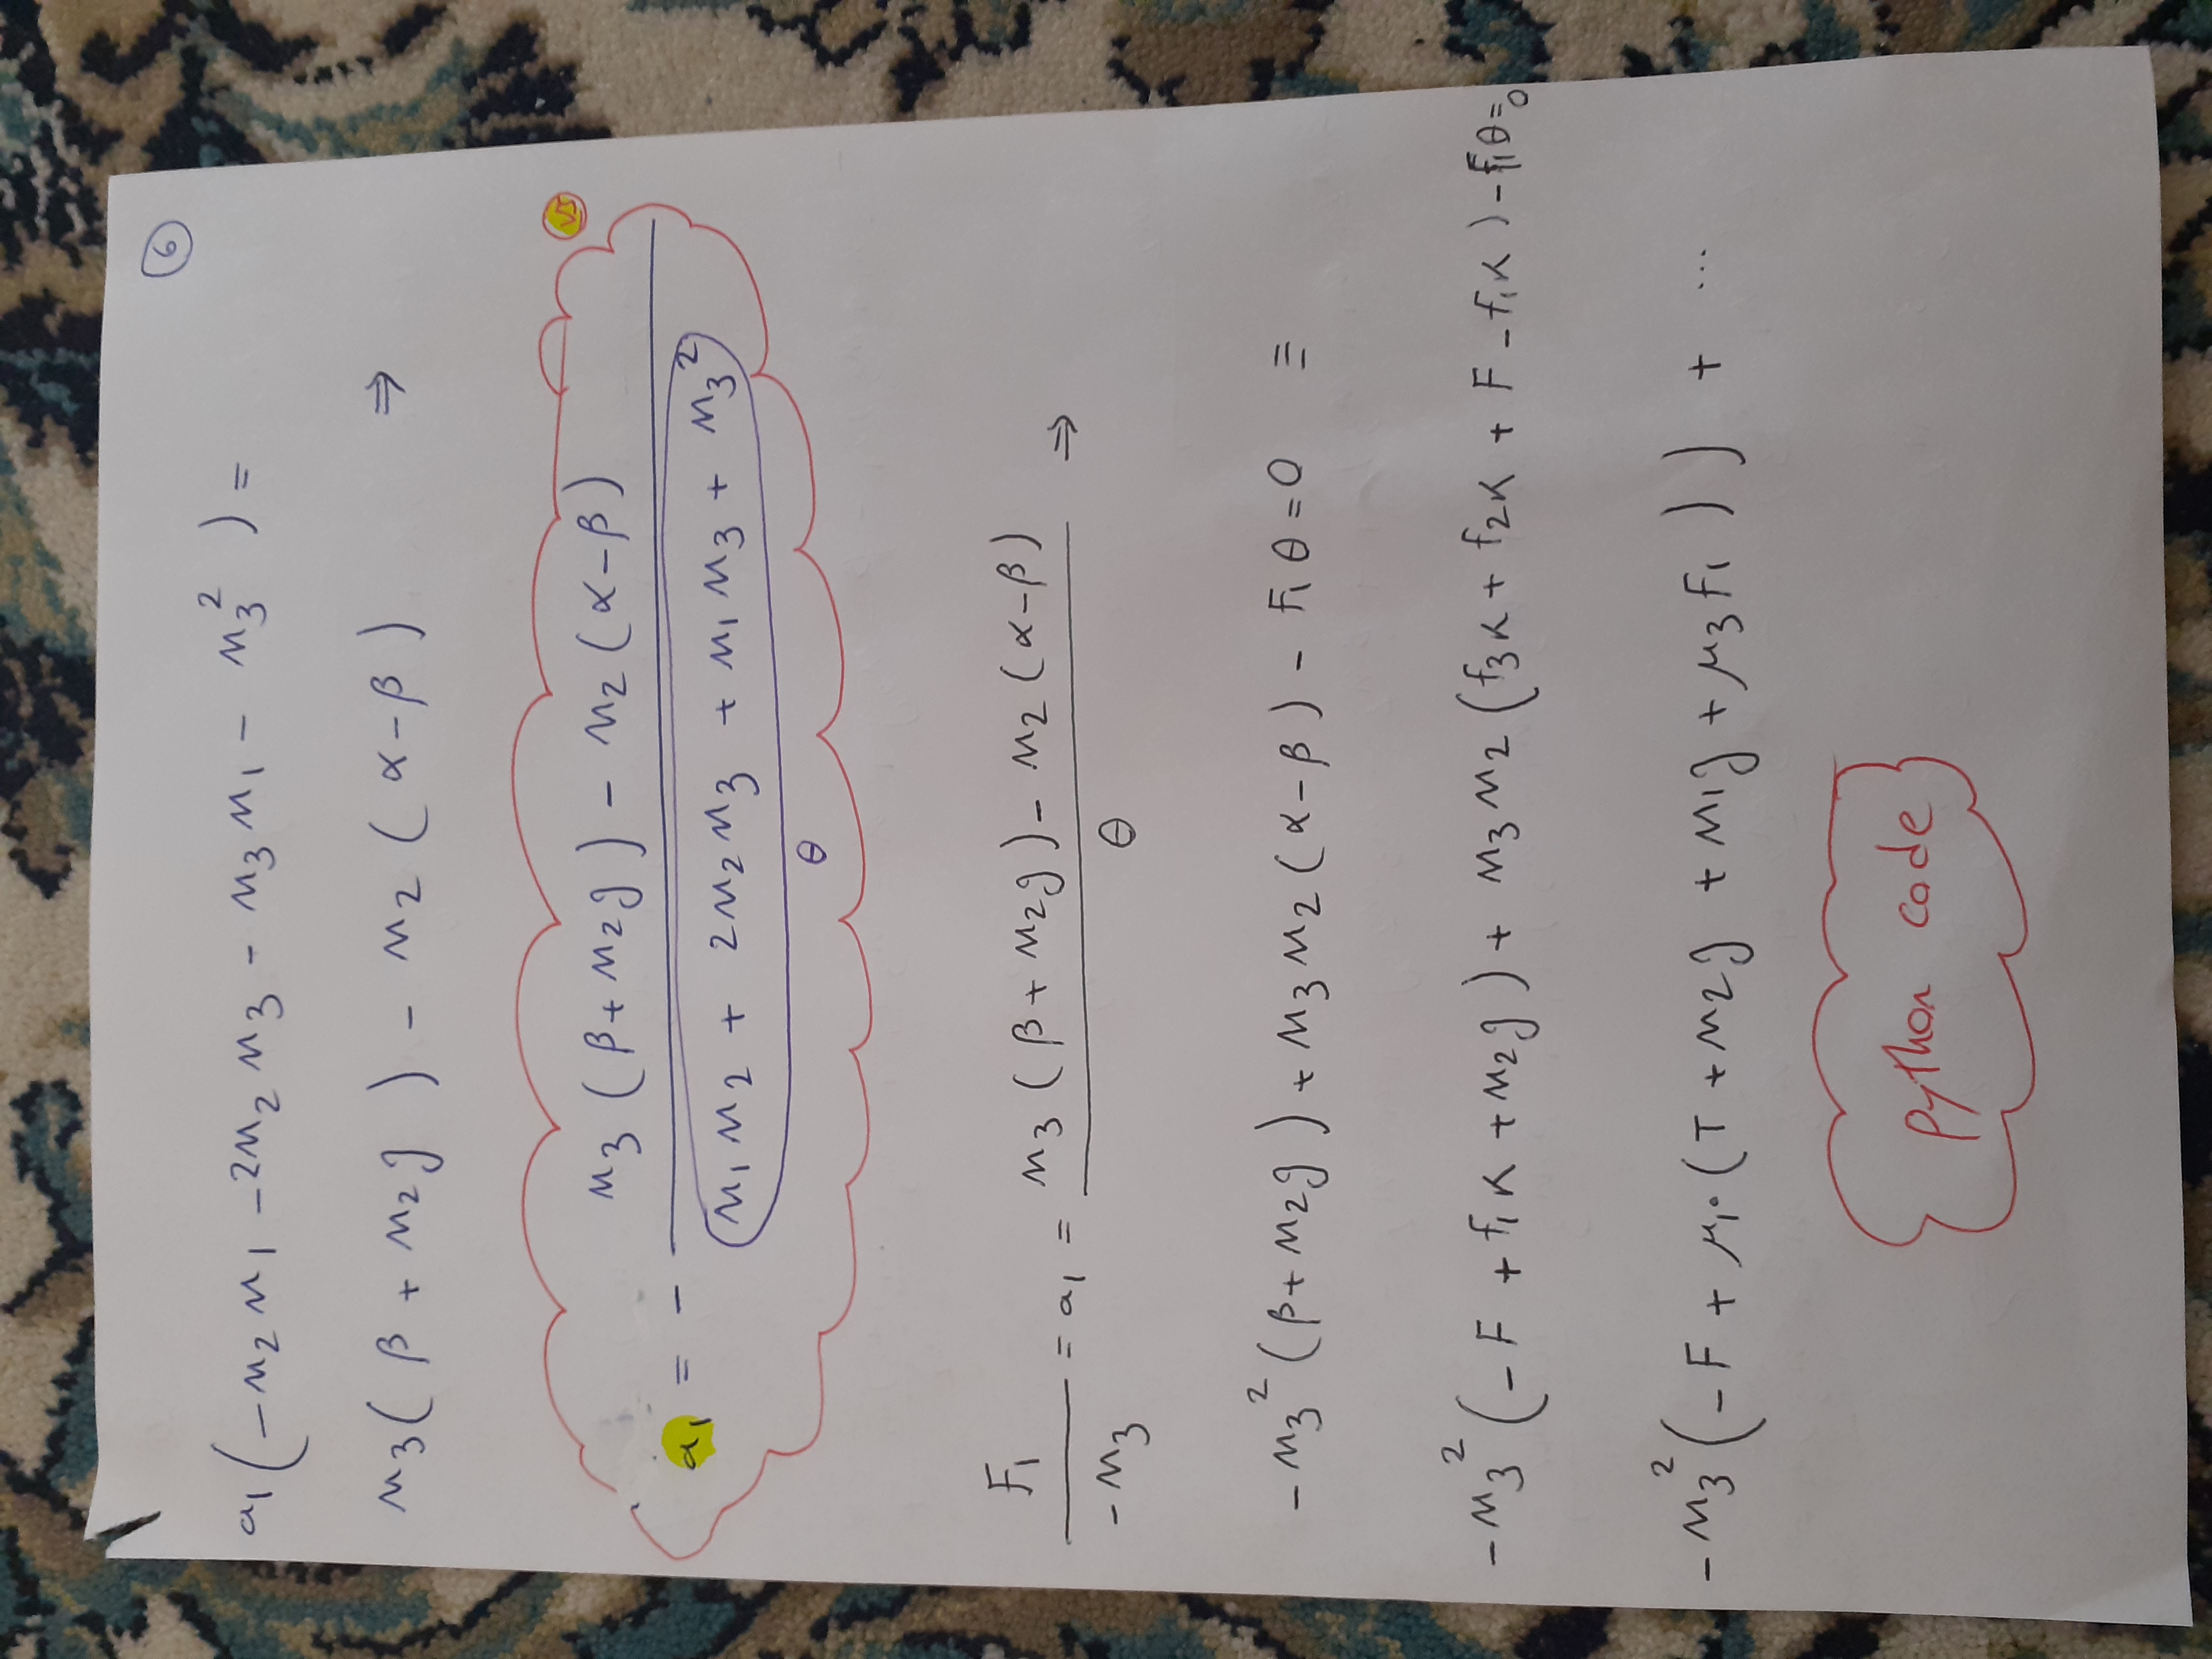 6
a₁(-m₂m₁ -2m₂m₃ - m₃m₁ - m₃²) =
m₃(β + m₂g) - m₂(α-β) ⇒
v5
m₃(β+m₂g) - m₂(α-β)
a₁ = -
m₁m₂ + 2m₂m₃ + m₁m₃ + m₃²
θ
F₁/-m₃ = a₁ = m₃(β+m₂g) - m₂(α-β)/θ ⇒
-m₃²(β+m₂g) + m₃m₂(α-β) - F₁θ=0 ≡
-m₃²(-F + f₁k + m₂g) + m₃m₂(f₃k + f₂k + F - f₁k) - F₁θ=0
-m₃²(-F + μ₁.(T + m₂g + m₁g + μ₃F₁)) + ...
python code